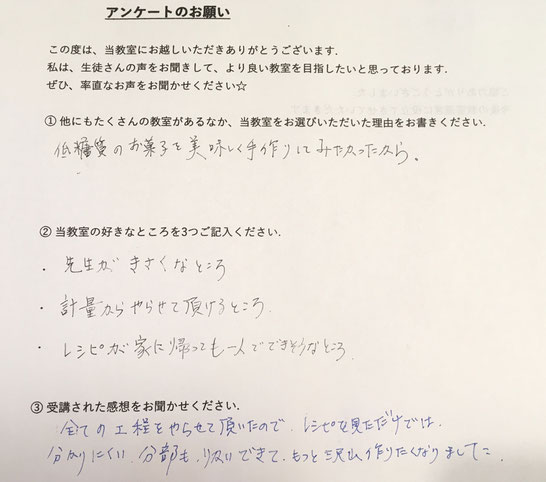 アンケートのお願い
この度は、当教室にお越しいただきありがとうございます.
私は、生徒さんの声をお聞きして、より良い教室を目指したいと思っております.
ぜひ、率直なお声をお聞かせください☆
① 他にもたくさんの教室があるなか、当教室をお選びいただいた理由をお書きください.
低糖質のお菓子を美味しく手作りしてみたかったから。
② 当教室の好きなところを3つご記入ください.
・ 先生がきさくなところ
・ 計量からやらせて頂けるところ.
・ レシピが家に帰っても一人でできそうなところ.
③ 受講された感想をお聞かせください.
全ての工程をやらせて頂いたので、レシピを見ただけでは、
分かりにくい部分も できて、もっと沢山作りたくなりました